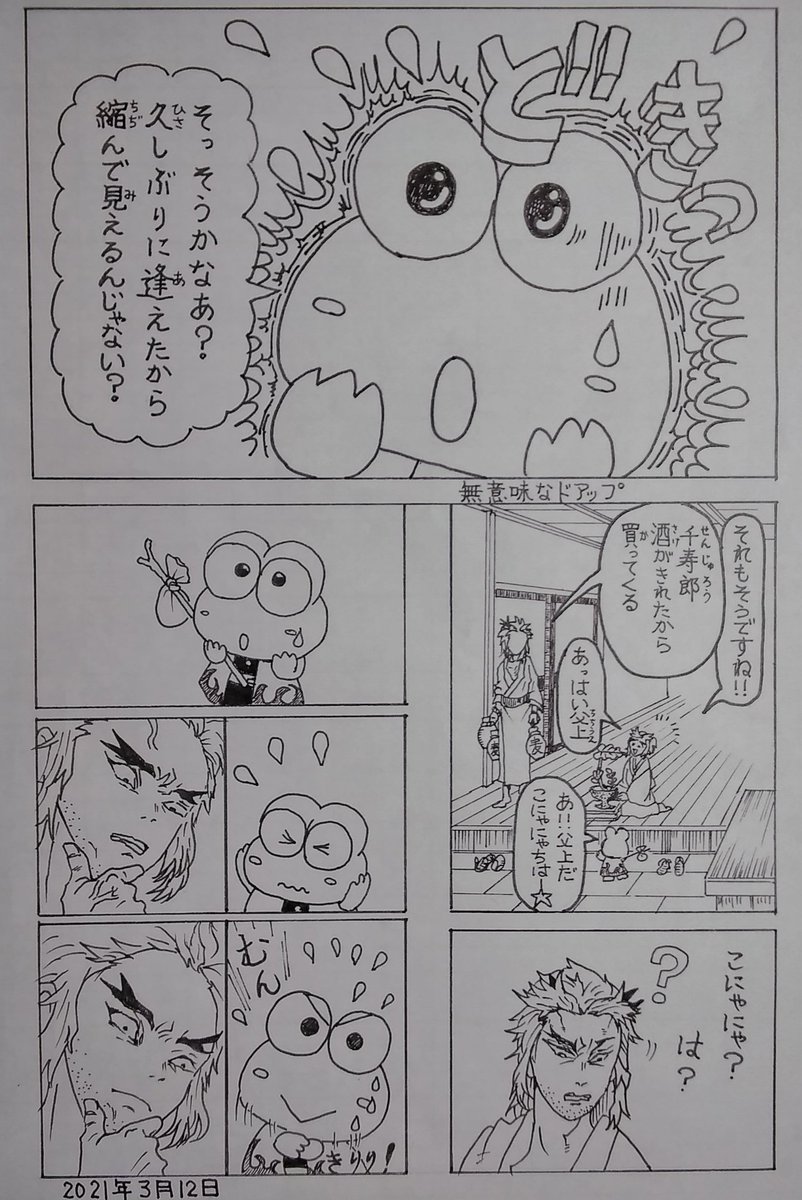 どきっ
そっそうかなあ?
久しぶりに逢えたから
縮んで見えるんじゃない?
無意味なドアップ
それもそうですね!!
千寿郎
酒がきれたから
買ってくる
あっはい父上
あ!!父上だ
こにゃにゃちは☆
こにゃにゃ?
は?
?
むん
きりり!
2021年3月12日